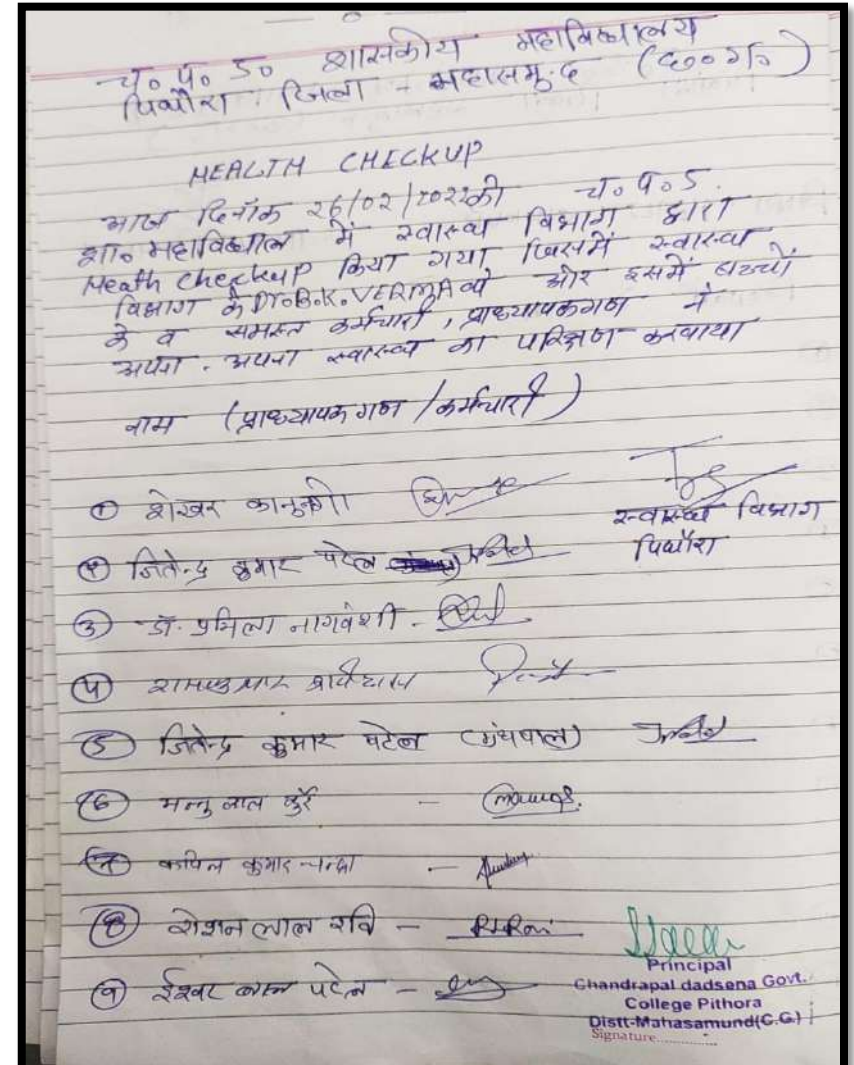 च० पा० ड० शासकीय महाविद्यालय
पिथौरा जिला - महासमुन्द (छ० ग०)
HEALTH CHECKUP
आज दिनाँक 26/02/2022को च० पा० ड.
शा० महाविद्यालय में स्वास्थ्य विभाग द्वारा
Heath checkup किया गया जिसमें स्वास्थ्य
विभाग के Dr. B.K. VERMA थे और इसमें बच्चों
के व समस्त कर्मचारी, प्राध्यापकगण ने
अपना - अपना स्वास्थ्य का परिक्षण करवाया
नाम (प्राध्यापक गण / कर्मचारी)
① शेखर कानूनगो
स्वास्थ्य विभाग
पिथौरा
② जितेन्द्र कुमार पटेल
③ डॉ. प्रमिला नागवंशी -
④ रामकुमार
⑤ जितेन्द्र कुमार पटेल (ग्रंथपाल)
⑥ मन्नु लाल कुर्रे -
⑦ कपिल कुमार चन्द्रा -
⑧ रोशन लाल रवि - RLRavi
⑨ ईश्वर लाल पटेल -
Principal
Chandrapal dadsena Govt.
College Pithora
Distt-Mahasamund(C.G.)
Signature..............